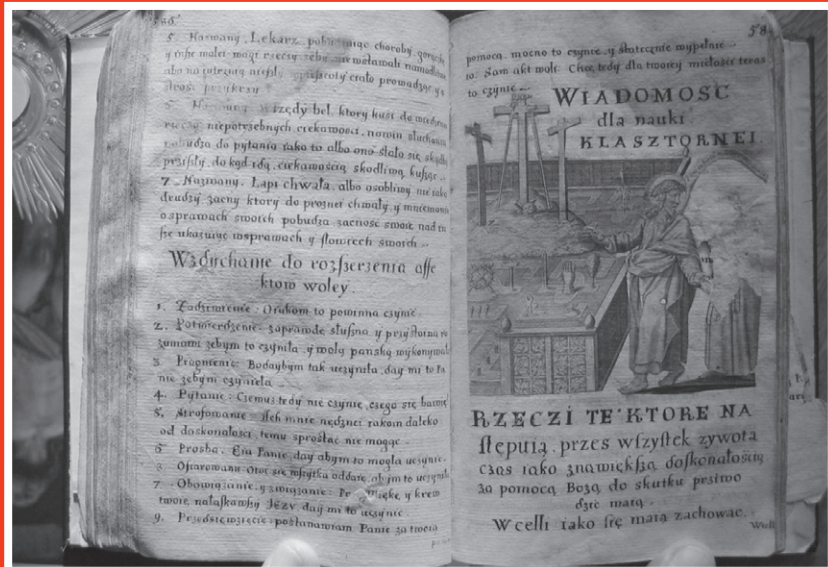 5. Nazwany. Lekarz
ciało prowadząc
rzeczy niepotrzebnych ciekawości, nowin słuchania
pobudza do pytania iako to albo ono stało się skądby
przyszły, do kąd idą, ciekawością skodliwą kusząc
7. Nazwany. Łapi chwała, albo osobliwy nie iako
drudzy zacny ktory do prozney chwały y mniemania
o sprawach swoich pobudza zacność swoię nad in
sze ukazuiąc w sprawach y słowiech swoich
Wzdychanie do rozszerzenia affe
ktow woley.
1. Zadziwienie: O rakom to powinna czynić
2. Potwierdzenie. zaprawdę słuszna y przystoina ro
zumowi zebym to czyniła y wolą panską wykonywała
3. Pragnienie. Bodaybym tak uczyniła, day mi to Pa
nie zebym czyniela
4. Pytanie: Czemuz tedy nie czynie, czego się bawię
5. Strofowanie Ach mnie nędznei rakom daleko
od doskonałości, temu sprostać nie mogąc
6 Prosba. Eia Panie day abym to mogła uczynić
8 Ofiarowanie Otoż się wszytka oddaię abym to uczyniła
7. Obowiązanie y związanie: Prze mękę y krew
twoię nałaskawszy Jezv day mi to uczynic
9. Przedsięwzięcie: postanawiam Panie za twoią
58
pomocą mocno to czynic y skutecznie wypełnic
to. Sam akt woli. Chcę tedy dla twoiey miłości teras
to czynic
WIADOMOSC
dla nauki
KLASZTORNEI
RZECZI TE KTORE NA
stępuią, przes wszystek zywota
czas iako znawiększą doskonałoscią
za pomocą Bozą do skutku przywo
dzic maią
W celli iako się maią zachowac.